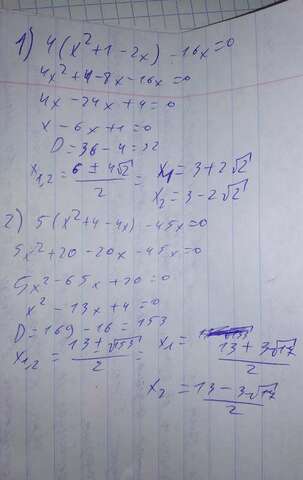 1) 4(x²+1-2x) - 16x=0
4x²+4-8x-16x=0
4x-24x+4=0
x-6x+1=0
D=36-4=32
x₁,₂= (6±4√2)/2 = x₁=3+2√2
x₂=3-2√2
2) 5(x²+4-4x) -45x=0
5x²+20-20x-45x=0
5x²-65x+20=0
x²-13x+4=0
D=169-16=153
x₁,₂= (13±√153)/2 = x₁= (13+3√17)/2
x₂= (13-3√17)/2